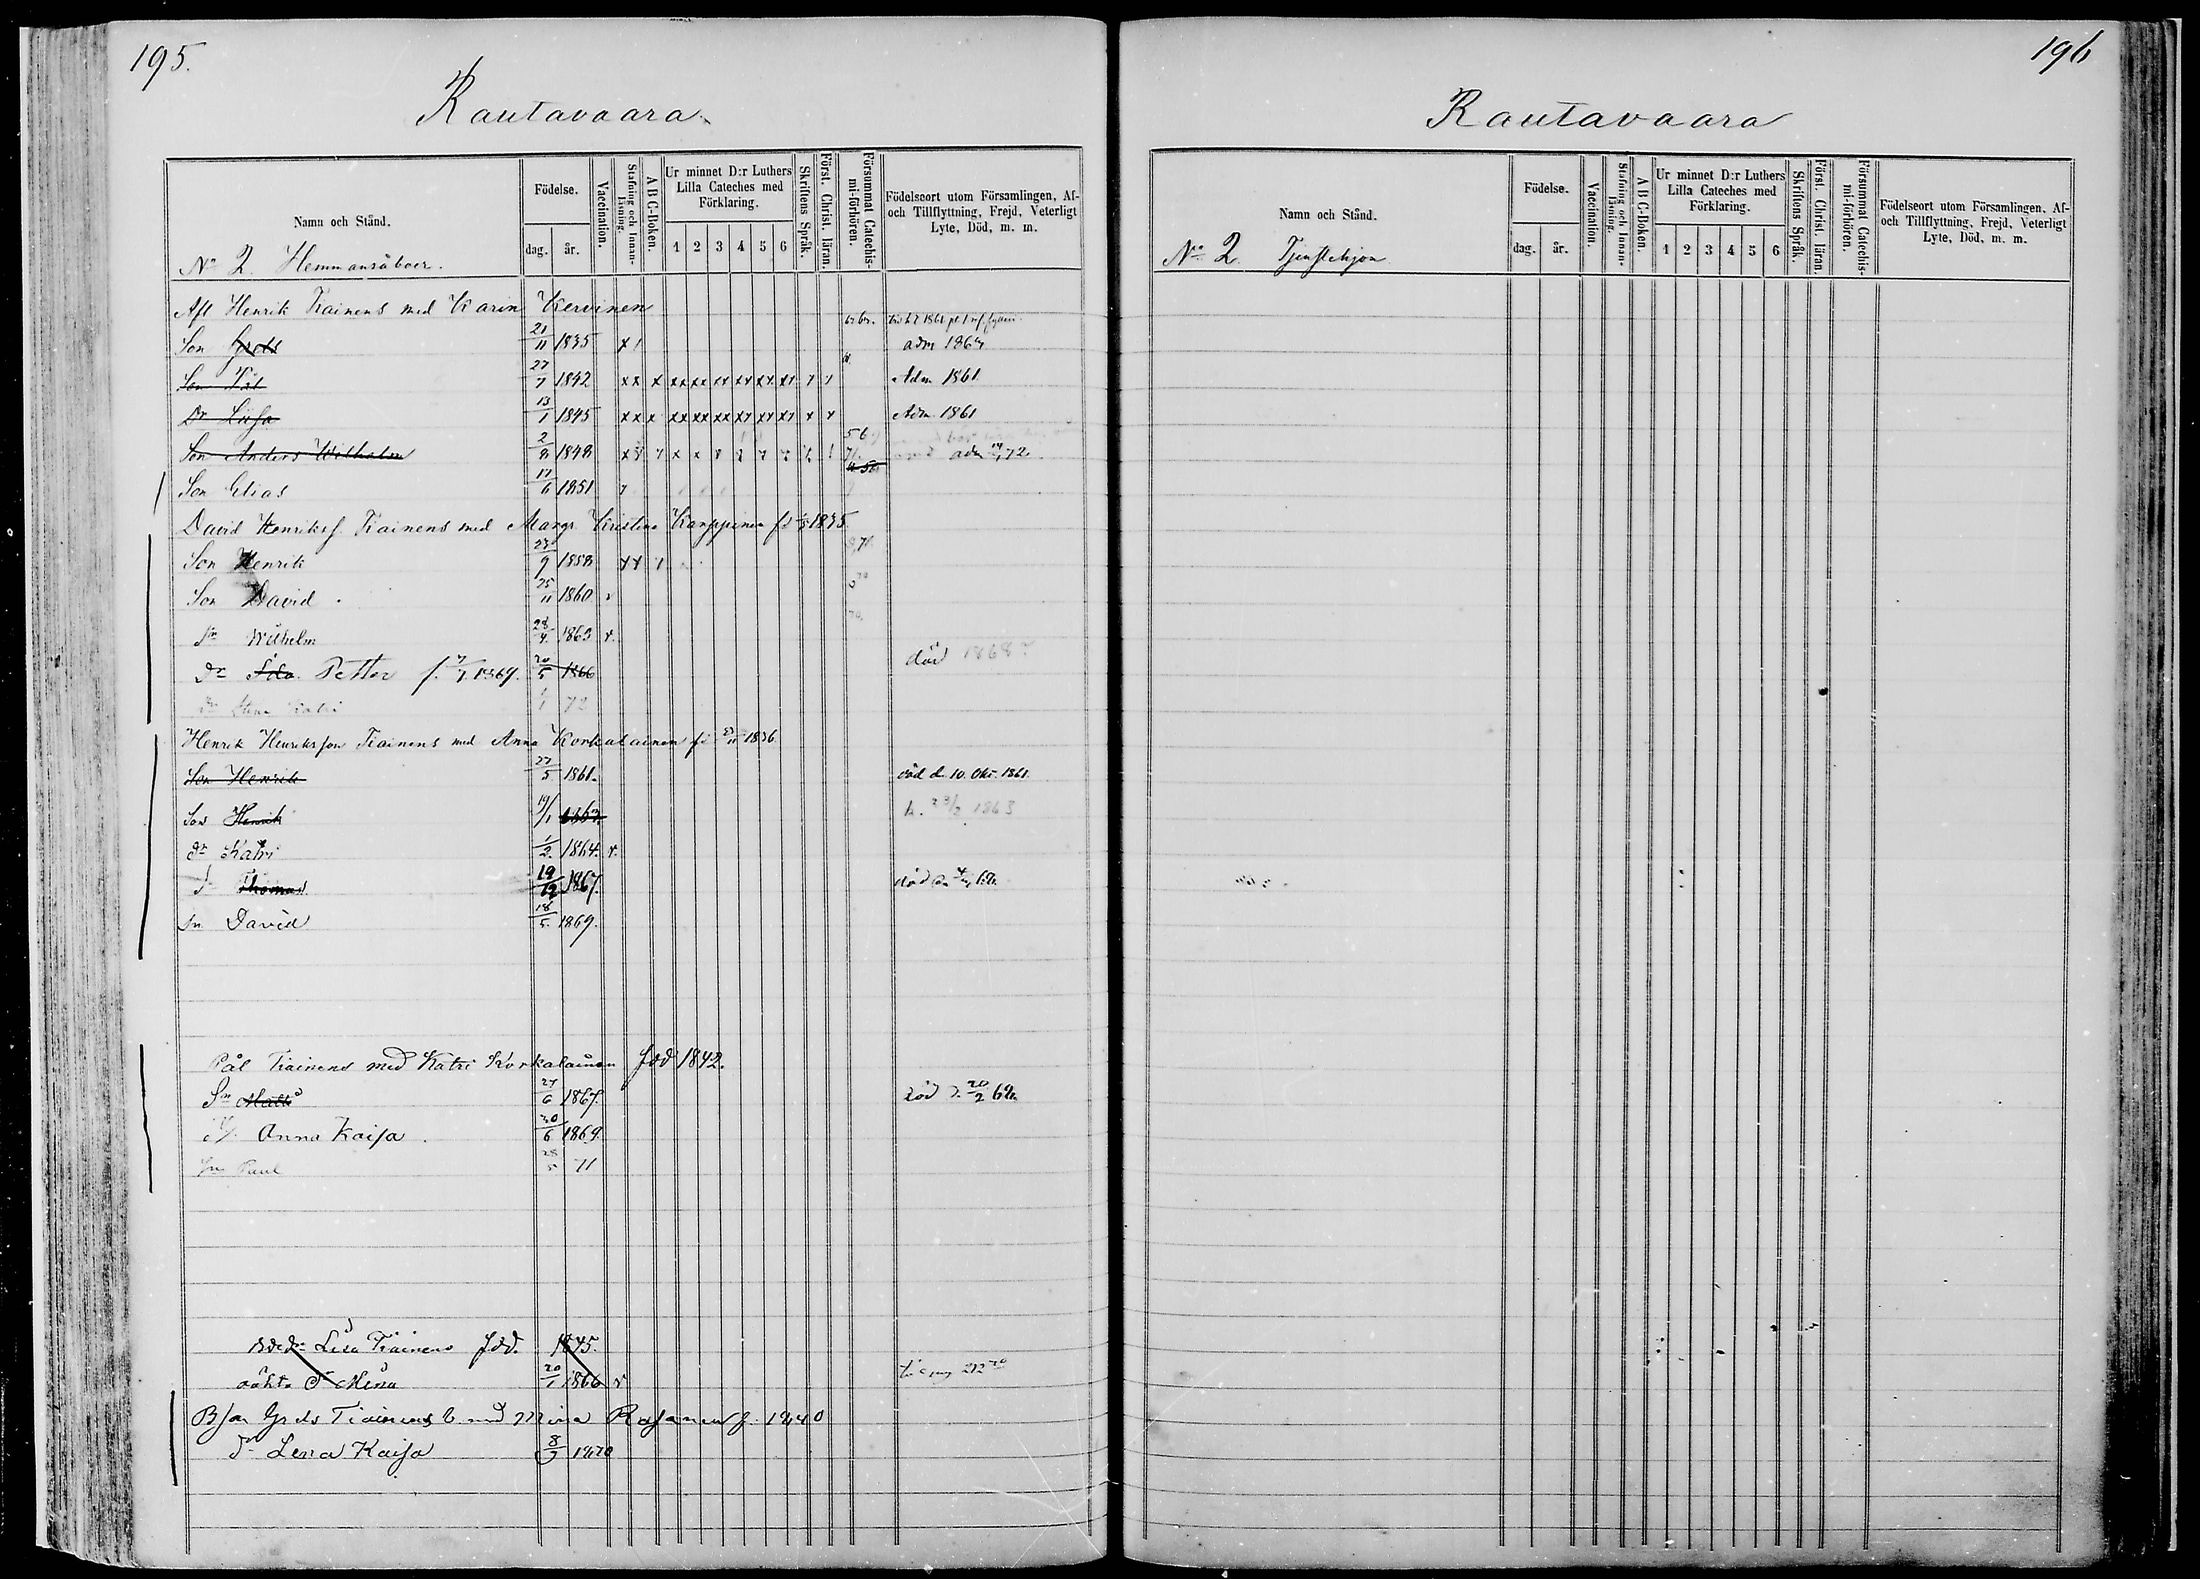 195.
Rautavaara
Namn och Stånd.
Födelse.
dag. år.
Vaccination.
Stafning och Innanläsning.
A B C-Boken.
Ur minnet D:r Luthers Lilla Cateches med Förklaring.
1 2 3 4 5 6
Skriftens Språk.
Först. Christ. läran.
Försummat Catechismi-förhören.
Födelseort utom Församlingen, Af- och Tillflyttning, Frejd, Veterligt Lyte, Död, m. m.
No 2. Hemmansåboer.
Afl Henrik Tiainens med Karin Kervinen
Son Grels 21/11 1835 x adm 1864
Son Pål 27/7 1842 xx x xx xx xx xx xx xx Adm 1861
Dr Lisa 13/1 1845 xx x xx xx xx xx xx xx x x Adm 1861
Son Anders Wilhelm 2/8 1848 adm 72
Son Elias 17/6 1851
David Henrikss. Tiainens med Margr Kristina Karppinen 1835
Son Henrik 23/9 1858
Son David 25/11 1860
Sn Wilhelm 28/4 1863
Petter f. 1869. 20/5 1866 död 1868
Dr Stina Katri 1/1 72
Henrik Henriksson Tiainens med Anna Korkalainen 1836
Son Henrik 27/5 1861. död d. 10 Okt. 1861
Son Henrik 19/1 1863 23/2 1863
dr Katri 1/2 1864.
Thomas 19/12 1867. död
Sn David 18/5 1869.
Pål Tiainens med Katri Korkalainen född 1842.
Sn Matts 27/6 1867. död d. 20/2 68.
Anna Kaisa 30/6 1869.
Sn Paul 28/5 71
Lisa Tiainens född 1845.
oäkta d Mina 20/1 1866
Grels Tiainens med Mina Räsänen f. 1840
dr Lena Kaisa 8/7 1870
196
Rautavaara
Namn och Stånd.
Födelse.
dag. år.
Vaccination.
Stafning och Innanläsning.
A B C-Boken.
Ur minnet D:r Luthers Lilla Cateches med Förklaring.
1 2 3 4 5 6
Skriftens Språk.
Först. Christ. läran.
Försummat Catechismi-förhören.
Födelseort utom Församlingen, Af- och Tillflyttning, Frejd, Veterligt Lyte, Död, m. m.
No 2 Tjenstehjon